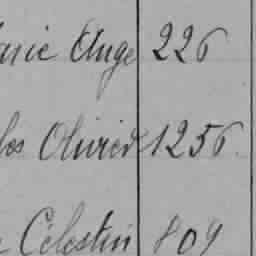 Marie Ange 226
les Olivier 1256
Célestin 809